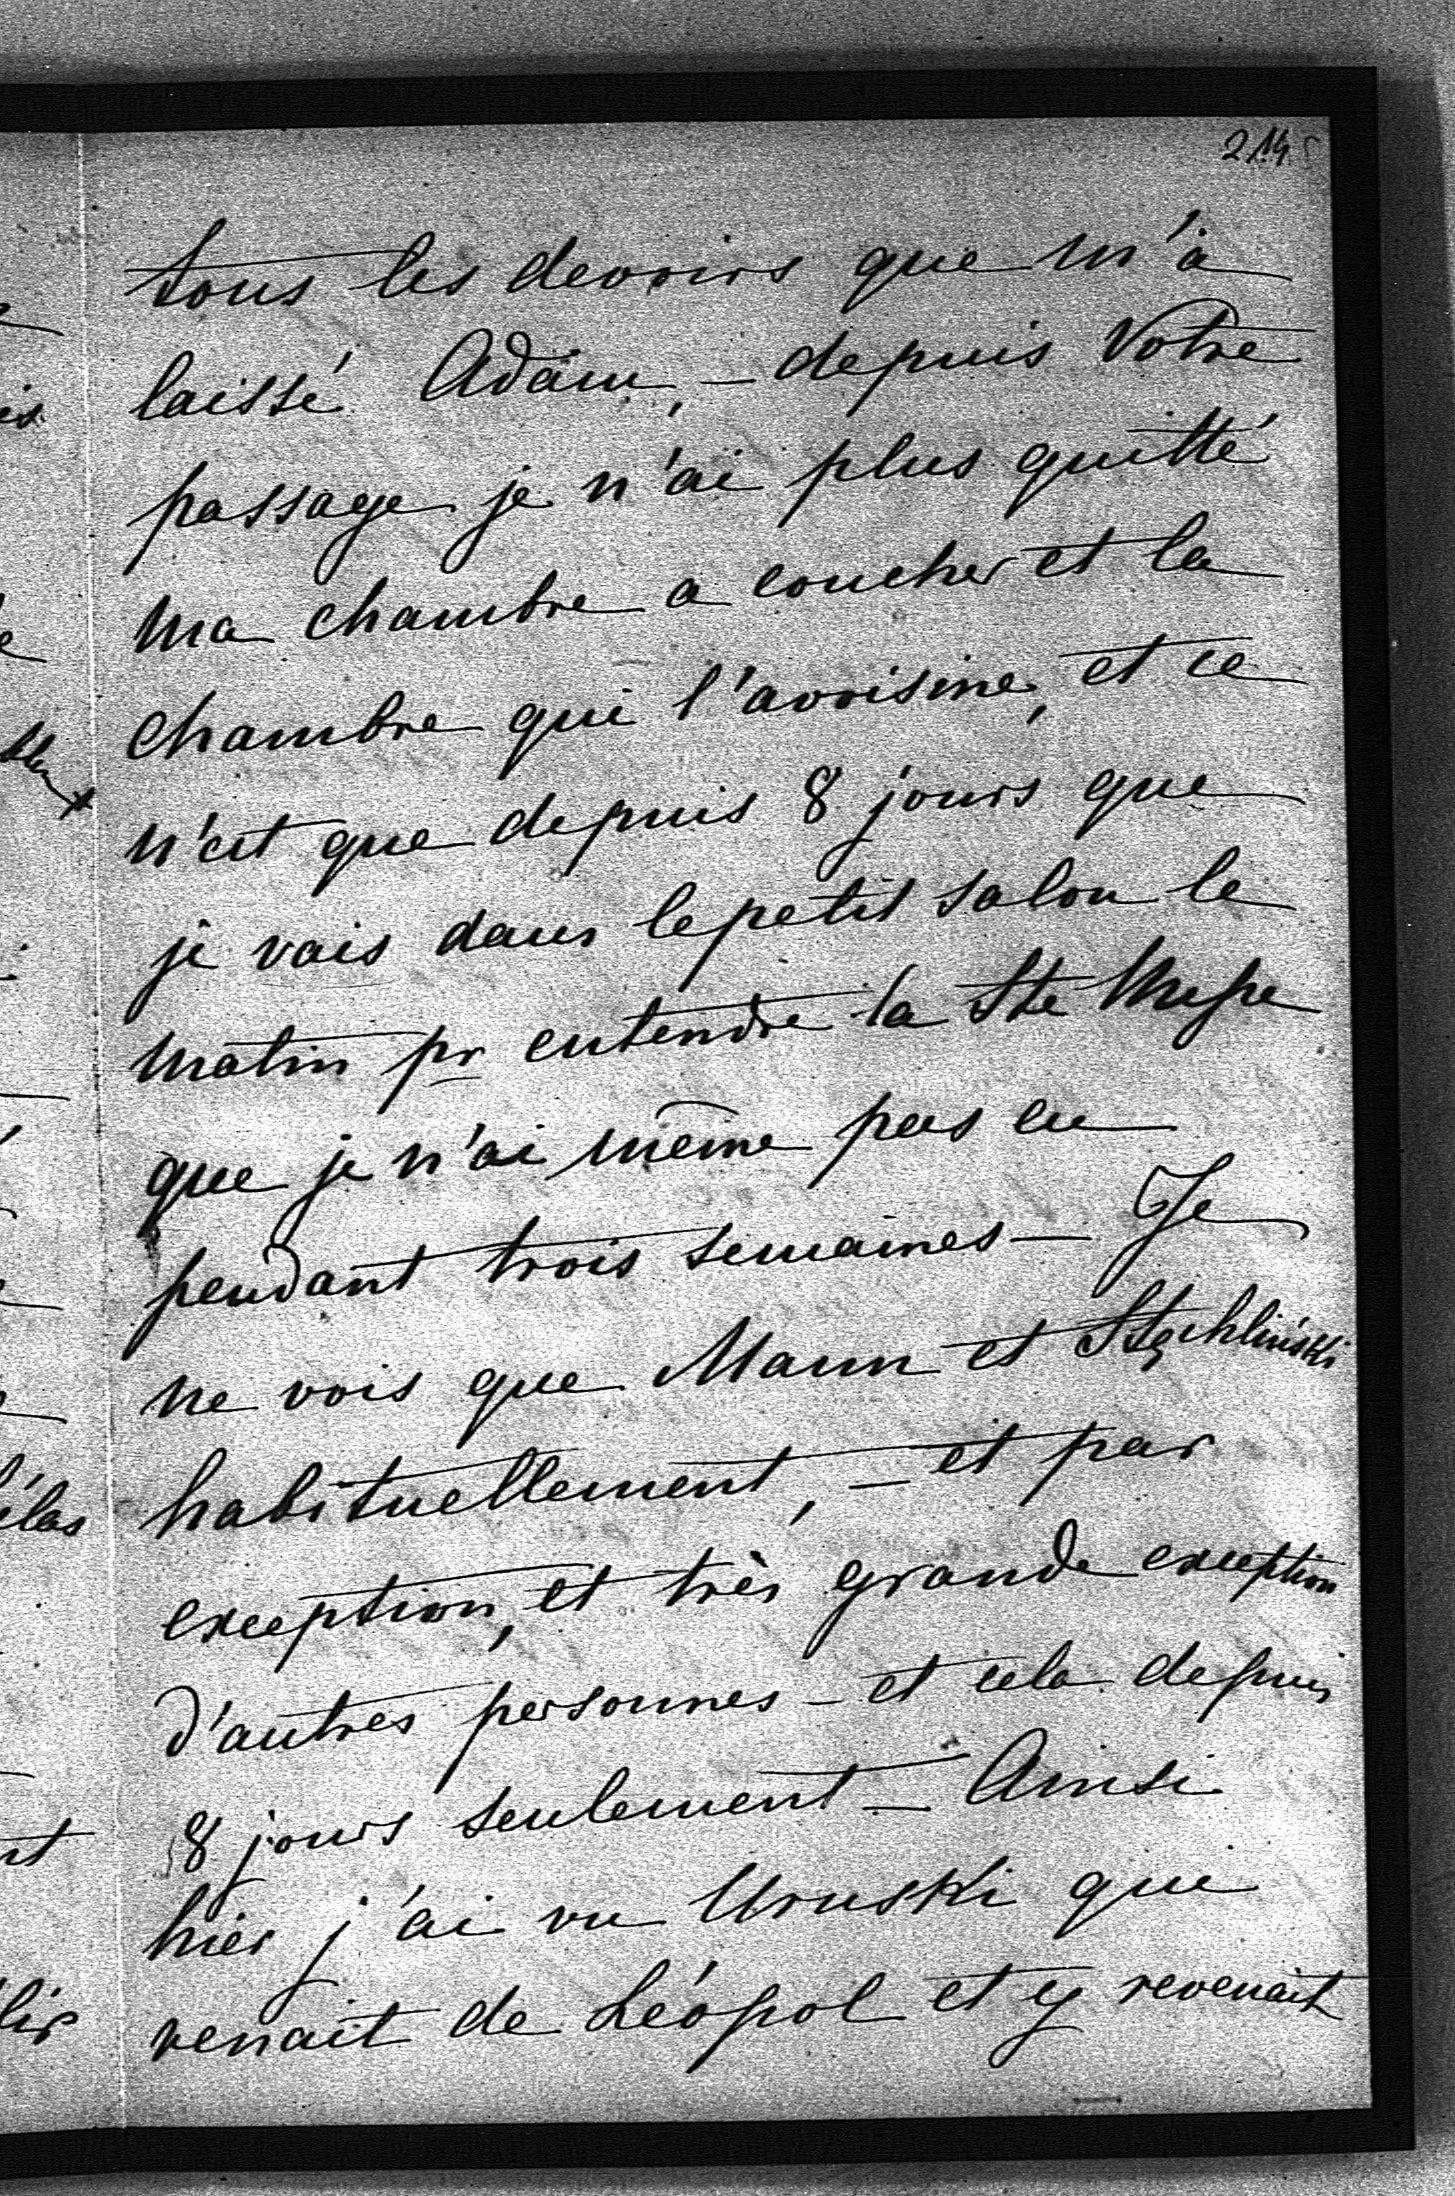 214
tous les devoirs que m'a
laissé Adam, – depuis Votre
passage je n'ai plus quitté
ma chambre a coucher et la
chambre qui l'avoisine, et ce
n'est que depuis 8 jours que
je vais dans le petit salon le
matin pr entendre la Ste Messe
que je n'ai même pas eu
pendant trois semaines – Je
ne vois que Mann et
habituellement, – et par
exception, et très grande exception
d'autres personnes – et cela depuis
8 jours seulement – Ainsi
hier j'ai vu Uruski qui
venait de Léopol et y revenait